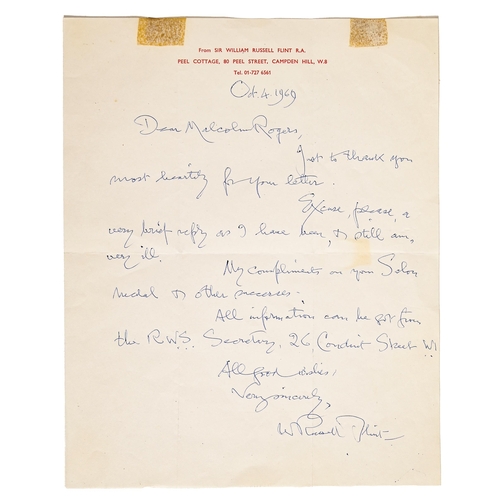 From SIR WILLIAM RUSSELL FLINT R.A.
PEEL COTTAGE, 80 PEEL STREET, CAMPDEN HILL, W.8
Tel. 01-727 6561
Oct. 4 1969
Dear Malcolm Rogers,
Just to thank you
most heartily for your letter.
Excuse, please, a
very brief reply as I have been, & still am,
very ill.
My compliments on your Salon
medal & other successes.
All information can be got from
the R.W.S. Secretary, 26, Conduit Street W1
All good wishes,
Very sincerely,
W Russell Flint